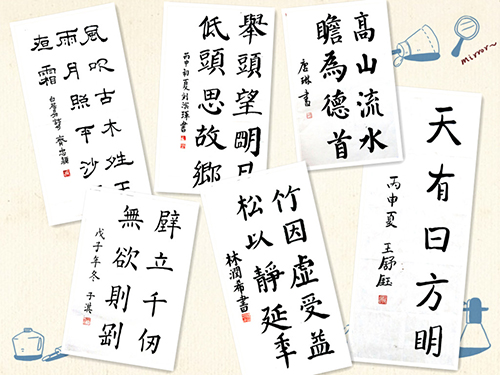 風吹古木
雨月照平沙
霜
白居易詩
舉頭望明月
低頭思故鄉
丙申初夏
高山流水
瞻為德首
唐琳書
Mirror~
天有日方明
丙申夏 王舒鈺
壁立千仞
無欲則剛
戊子年冬 子淇
竹因虛受益
松以靜延年
林潤希書